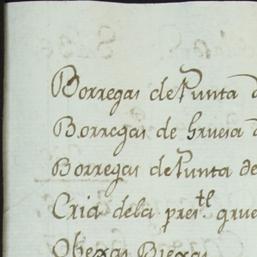 Borregas de Punta d
Borregas de Gruesa d
Borregas de Punta de
Cria dela pres.te grue
Obejas Biejas